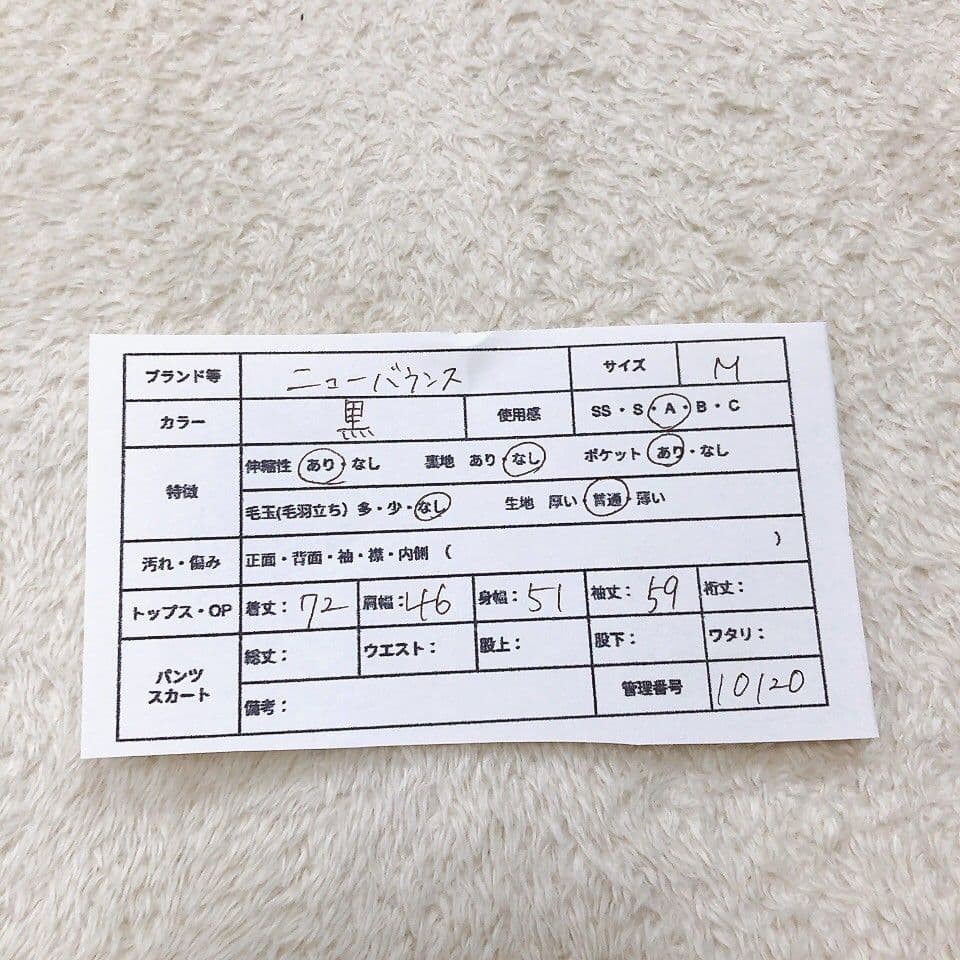 ブランド等 ニューバウンス サイズ M
カラー 黒 使用感 SS・S・A・B・C
特徴 伸縮性 あり・なし 裏地 あり・なし ポケット あり・なし
毛玉(毛羽立ち) 多・少・なし 生地 厚い・普通・薄い
汚れ・傷み 正面・背面・袖・襟・内側 ( )
トップス・OP 着丈：72 肩幅：46 身幅：51 袖丈：59 裄丈：
パンツ スカート 総丈： ウエスト： 股上： 股下： ワタリ：
備考： 管理番号 10120